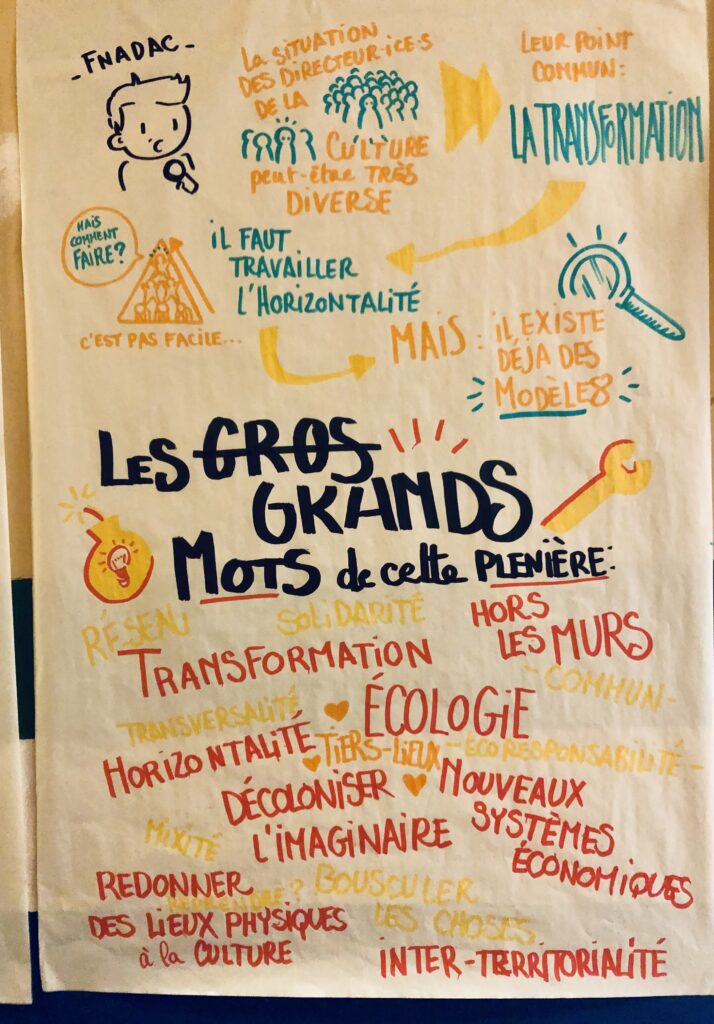 - FNADAC -
La SITUATION
DES DIRECTEUR·ICE·S
DE LA
CULTURE
peut-être TRÈS
DIVERSE
LEUR POINT
COMMUN :
LA TRANSFORMATION
MAIS
COMMENT
FAIRE ?
C'EST PAS FACILE...
iL FAUT
TRAVAILLER
L'HORIZONTALITÉ
MAIS : iL EXISTE
DÉJA DES
MODÈLES
LES GROS
GRANDS
MOTS de cette PLENIÈRE :
RÉSEAU
SOLIDARITÉ
HORS
LES MURS
TRANSFORMATION
- COMMUN -
TRANSVERSALITÉ
ÉCOLOGIE
HORIZONTALITÉ
TIERS-LIEUX
- ECORESPONSABILITÉ -
DÉCOLONISER
L'IMAGINAIRE
NOUVEAUX
SYSTÈMES
ÉCONOMIQUES
MIXITÉ
REDONNER
REPRENDRE ?
BOUSCULER
DES LIEUX PHYSIQUES
LES CHOSES
à la CULTURE
INTER-TERRITORIALITÉ